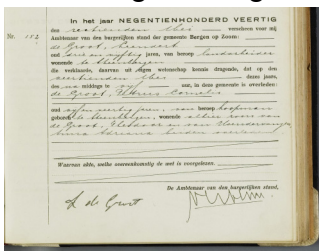 In het jaar NEGENTIENHONDERD VEERTIG
Nr. 152
den zestienden Mei verscheen voor mij
Ambtenaar van den burgerlijken stand der gemeente Bergen op Zoom:
de Groot,
oud drie en vijftig jaren, van beroep landarbeider
wonende te Steenbergen
die verklaarde, daarvan uit eigen wetenschap kennis dragende, dat op den
veertienden Mei dezes jaars,
des na middags te vijf uur, in deze gemeente is overleden:
de Groot, Petrus Cornelis
oud vijf en veertig jaren, van beroep koopman
geboren te Steenbergen, wonende alhier zoon van
de Groot, Theodoor en van
Anna Adriana beiden overleden
Waarvan akte, welke overeenkomstig de wet is voorgelezen.
De Ambtenaar van den burgerlijken stand,
de Groot